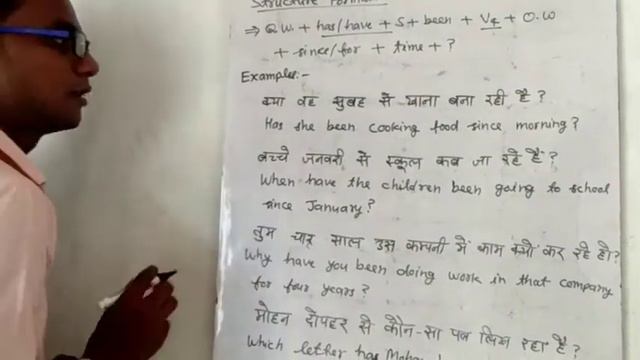 Structure
⇒ Q.W. + has/have + S + been + V4 + O.W
+ since/for + time + ?
Examples:-
क्या वह सुबह से खाना बना रही है ?
Has she been cooking food since morning?
बच्चे जनवरी से स्कूल कब जा रहे हैं ?
When have the children been going to school
since January?
तुम चार साल उस कम्पनी में काम क्यों कर रहे हो?
Why have you been doing work in that company
for four years?
मोहन दोपहर से कौन-सा पत्र लिख रहा है ?
Which lether has